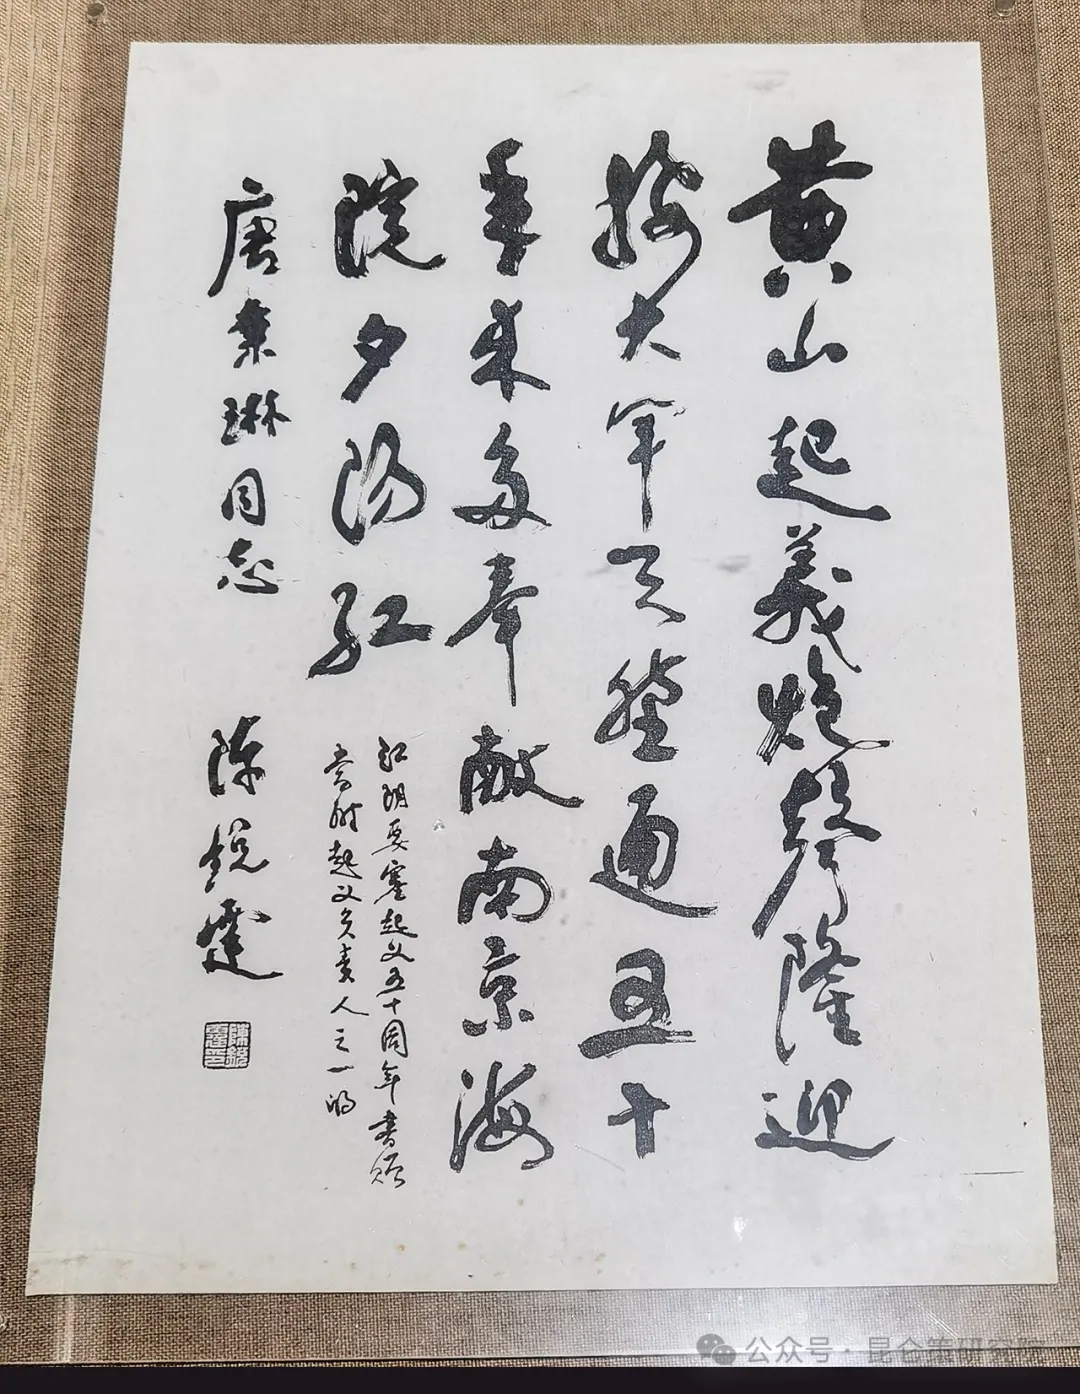 黄山起義炮聲隆迎
接大军天堑通五十
年来多奉献南京海
院夕阳红
江阴要塞起义五十周年書赠
当时起义负责人之一的
唐秉琳同志
陈锐霆
陳銳霆印
公众号·昆仑策研究院